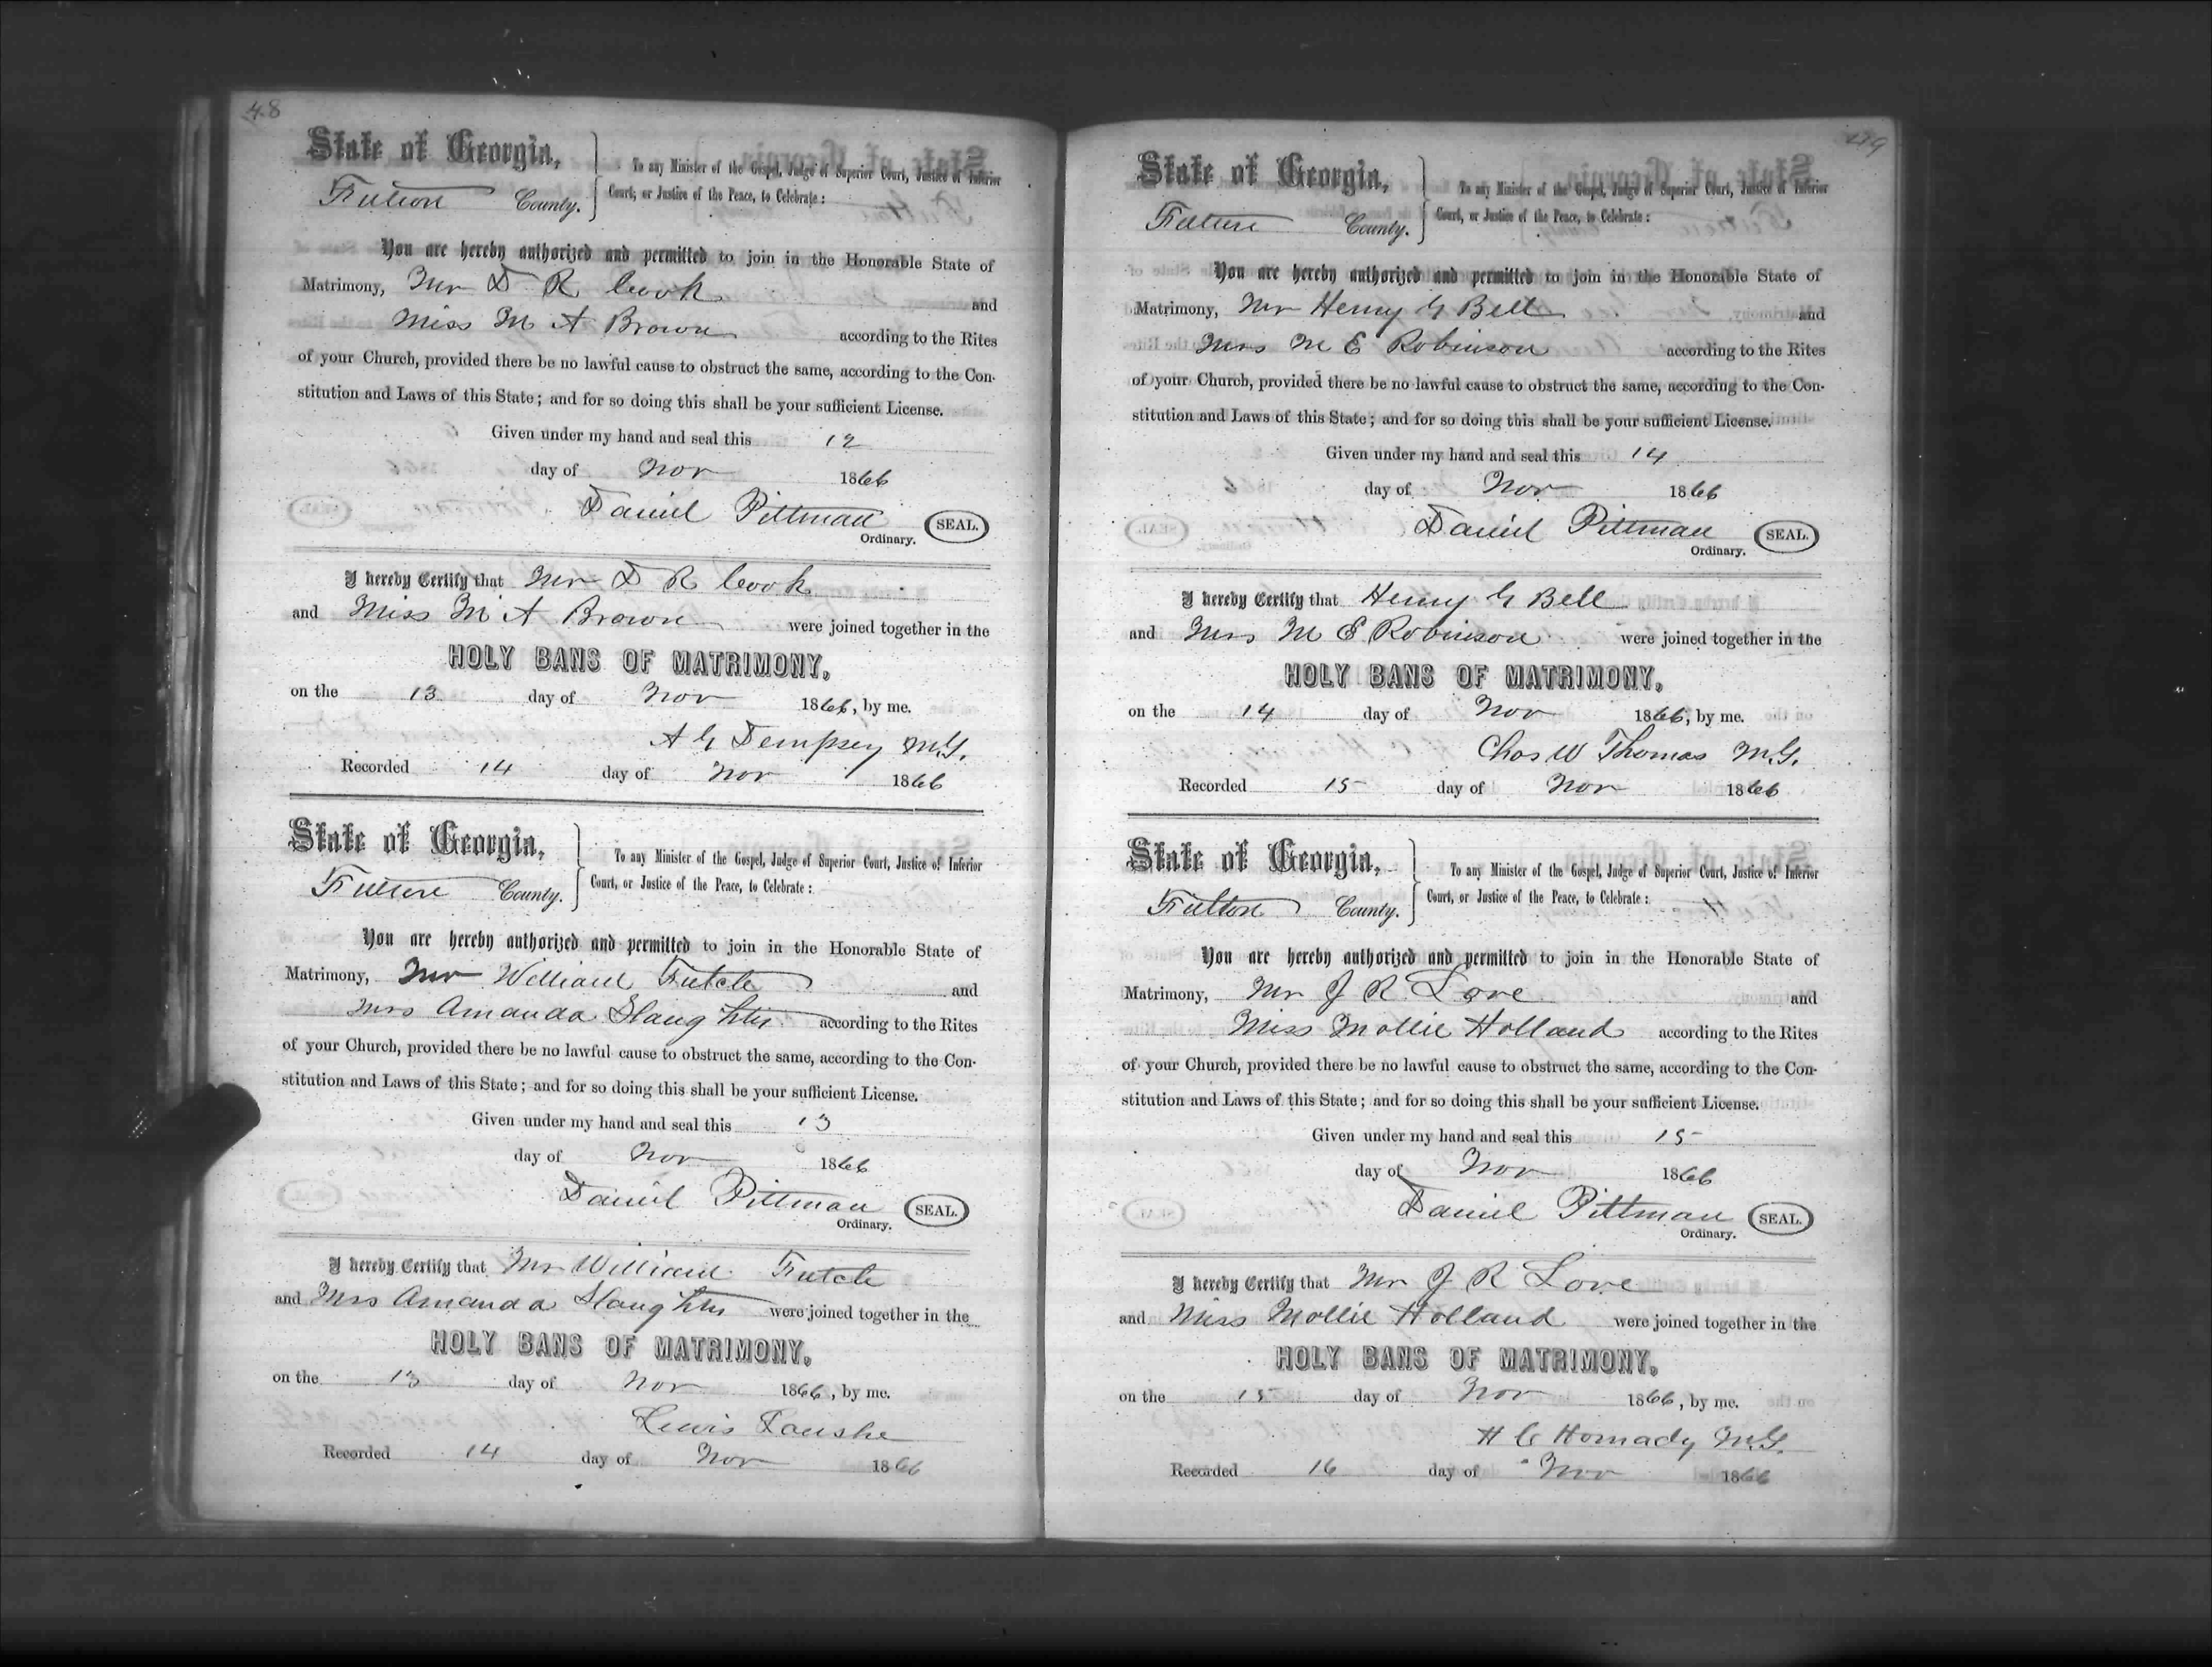 48
State of Georgia,
Fulton County.
To any Minister of the Gospel, Judge of Superior Court, Justice of Inferior
Court, or Justice of the Peace, to Celebrate:
You are hereby authorized and permitted to join in the Honorable State of
Matrimony, Mr D R Cook and
Miss M A Brown according to the Rites
of your Church, provided there be no lawful cause to obstruct the same, according to the Con-
stitution and Laws of this State; and for so doing this shall be your sufficient License.
Given under my hand and seal this 12
day of Nov 1866
Daniel Pittman SEAL.
Ordinary.
I hereby Certify that Mr D R Cook
and Miss M A Brown were joined together in the
HOLY BANS OF MATRIMONY,
on the 13 day of Nov 1866, by me.
A G Dempsey M.G.
Recorded 14 day of Nov 1866
State of Georgia,
Fulton County.
To any Minister of the Gospel, Judge of Superior Court, Justice of Inferior
Court, or Justice of the Peace, to Celebrate:
You are hereby authorized and permitted to join in the Honorable State of
Matrimony, Mr William Futch and
Mrs Amanda Slaughter according to the Rites
of your Church, provided there be no lawful cause to obstruct the same, according to the Con-
stitution and Laws of this State; and for so doing this shall be your sufficient License.
Given under my hand and seal this 13
day of Nov 1866
Daniel Pittman SEAL.
Ordinary.
I hereby Certify that Mr William Futch
and Mrs Amanda Slaughter were joined together in the
HOLY BANS OF MATRIMONY,
on the 13 day of Nov 1866, by me.
Lewis
Recorded 14 day of Nov 1866
49
State of Georgia,
Fulton County.
To any Minister of the Gospel, Judge of Superior Court, Justice of Inferior
Court, or Justice of the Peace, to Celebrate:
You are hereby authorized and permitted to join in the Honorable State of
Matrimony, Mr Henry G Bell and
Mrs M E Robinson according to the Rites
of your Church, provided there be no lawful cause to obstruct the same, according to the Con-
stitution and Laws of this State; and for so doing this shall be your sufficient License.
Given under my hand and seal this 14
day of Nov 1866
Daniel Pittman SEAL.
Ordinary.
I hereby Certify that Henry G Bell
and Mrs M E Robinson were joined together in the
HOLY BANS OF MATRIMONY,
on the 14 day of Nov 1866, by me.
Chas W Thomas M.G.
Recorded 15 day of Nov 1866
State of Georgia,
Fulton County.
To any Minister of the Gospel, Judge of Superior Court, Justice of Inferior
Court, or Justice of the Peace, to Celebrate:
You are hereby authorized and permitted to join in the Honorable State of
Matrimony, Mr J R Love and
Miss Mollie Holland according to the Rites
of your Church, provided there be no lawful cause to obstruct the same, according to the Con-
stitution and Laws of this State; and for so doing this shall be your sufficient License.
Given under my hand and seal this 15
day of Nov 1866
Daniel Pittman SEAL.
Ordinary.
I hereby Certify that Mr J R Love
and Miss Mollie Holland were joined together in the
HOLY BANS OF MATRIMONY,
on the 15 day of Nov 1866, by me.
H C Hornady M.G.
Recorded 16 day of Nov 1866